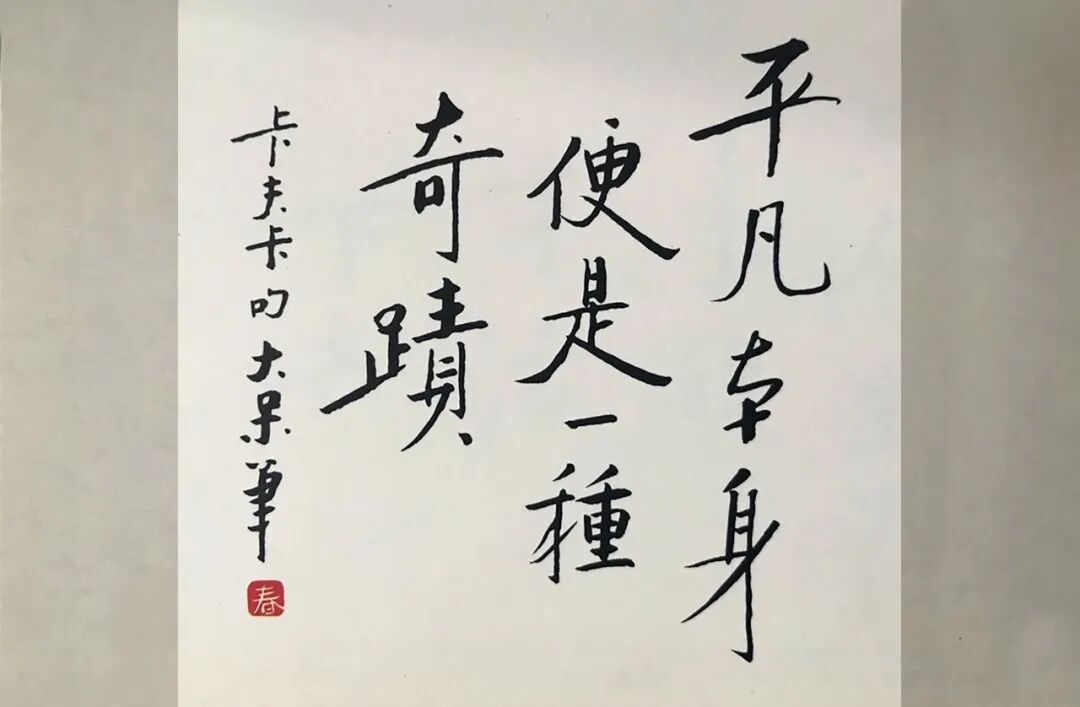 平凡本身
便是一種
奇蹟
卡夫卡的大呆筆
春